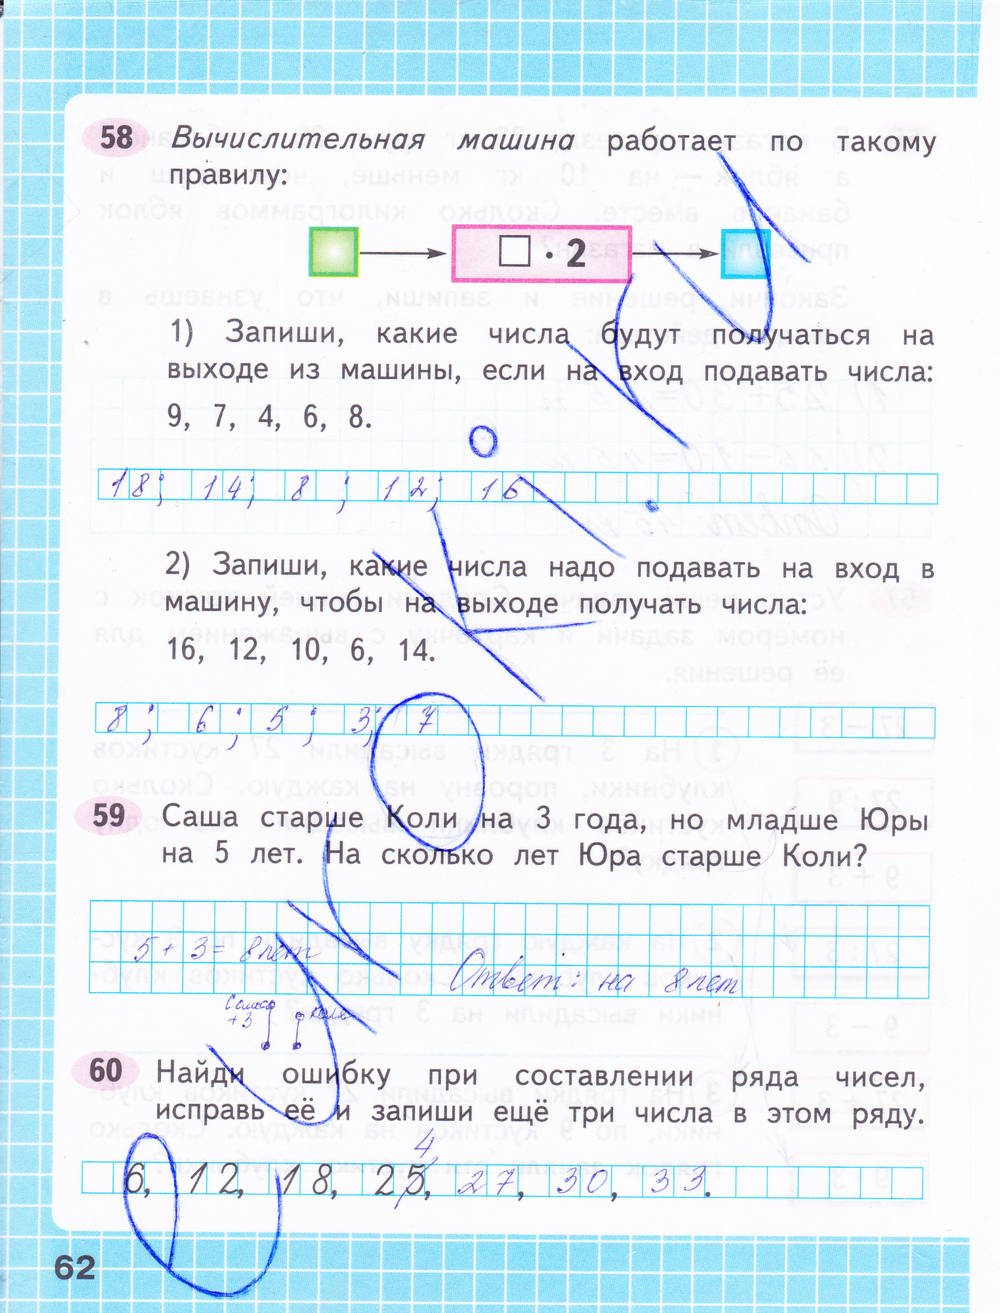 58 Вычислительная машина работает по такому
правилу:
□ · 2
1) Запиши, какие числа будут получаться на
выходе из машины, если на вход подавать числа:
9, 7, 4, 6, 8.
18; 14; 8; 12; 16
2) Запиши, какие числа надо подавать на вход в
машину, чтобы на выходе получать числа:
16, 12, 10, 6, 14.
8; 6; 5; 3; 7
59 Саша старше Коли на 3 года, но младше Юры
на 5 лет. На сколько лет Юра старше Коли?
5 + 3 = 8 лет
Ответ: на 8 лет
Саша Коля
+3
60 Найди ошибку при составлении ряда чисел,
исправь её и запиши ещё три числа в этом ряду.
4
6, 12, 18, 25, 27, 30, 33.
62